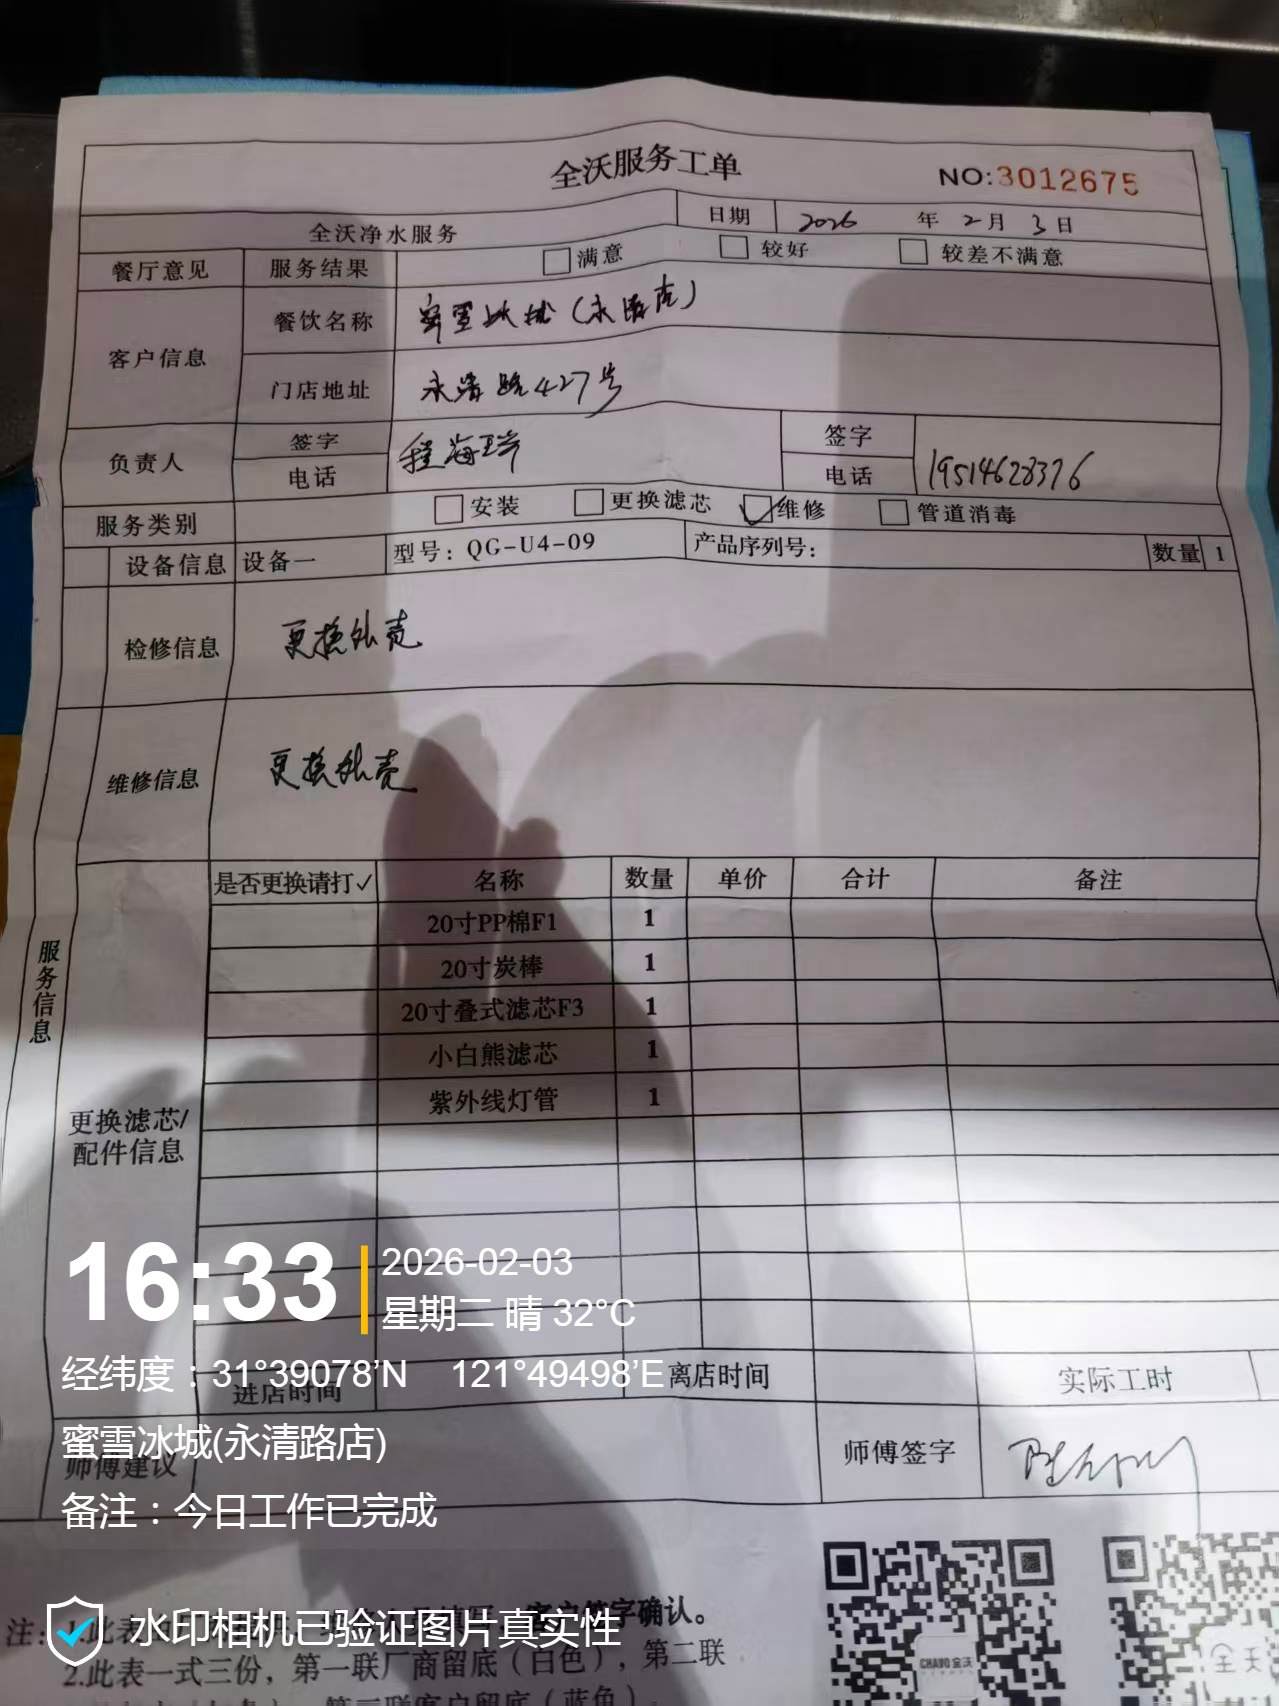 全沃服务工单
NO:3012675
全沃净水服务 日期 2026 年 2 月 3 日
餐厅意见 服务结果 满意 较好 较差不满意
客户信息 餐饮名称 蜜雪冰城(永清店)
门店地址 永清路427号
负责人 签字 程海 签字
电话 电话 19514628376
服务类别 安装 更换滤芯 ✓维修 管道消毒
设备信息 设备一 型号：QG-U4-09 产品序列号： 数量 1
检修信息 更换外壳
维修信息 更换外壳
服务信息
是否更换请打✓ 名称 数量 单价 合计 备注
20寸PP棉F1 1
20寸炭棒 1
20寸叠式滤芯F3 1
小白熊滤芯 1
紫外线灯管 1
更换滤芯/
配件信息
16:33
2026-02-03
星期二 晴 32°C
经纬度：31°39078’N 121°49498’E
进店时间 离店时间 实际工时
蜜雪冰城(永清路店)
师傅建议 师傅签字
备注：今日工作已完成
注：1.此表 客户签字确认。
水印相机已验证图片真实性
2.此表一式三份，第一联厂商留底（白色），第二联
CHABO全沃
全天